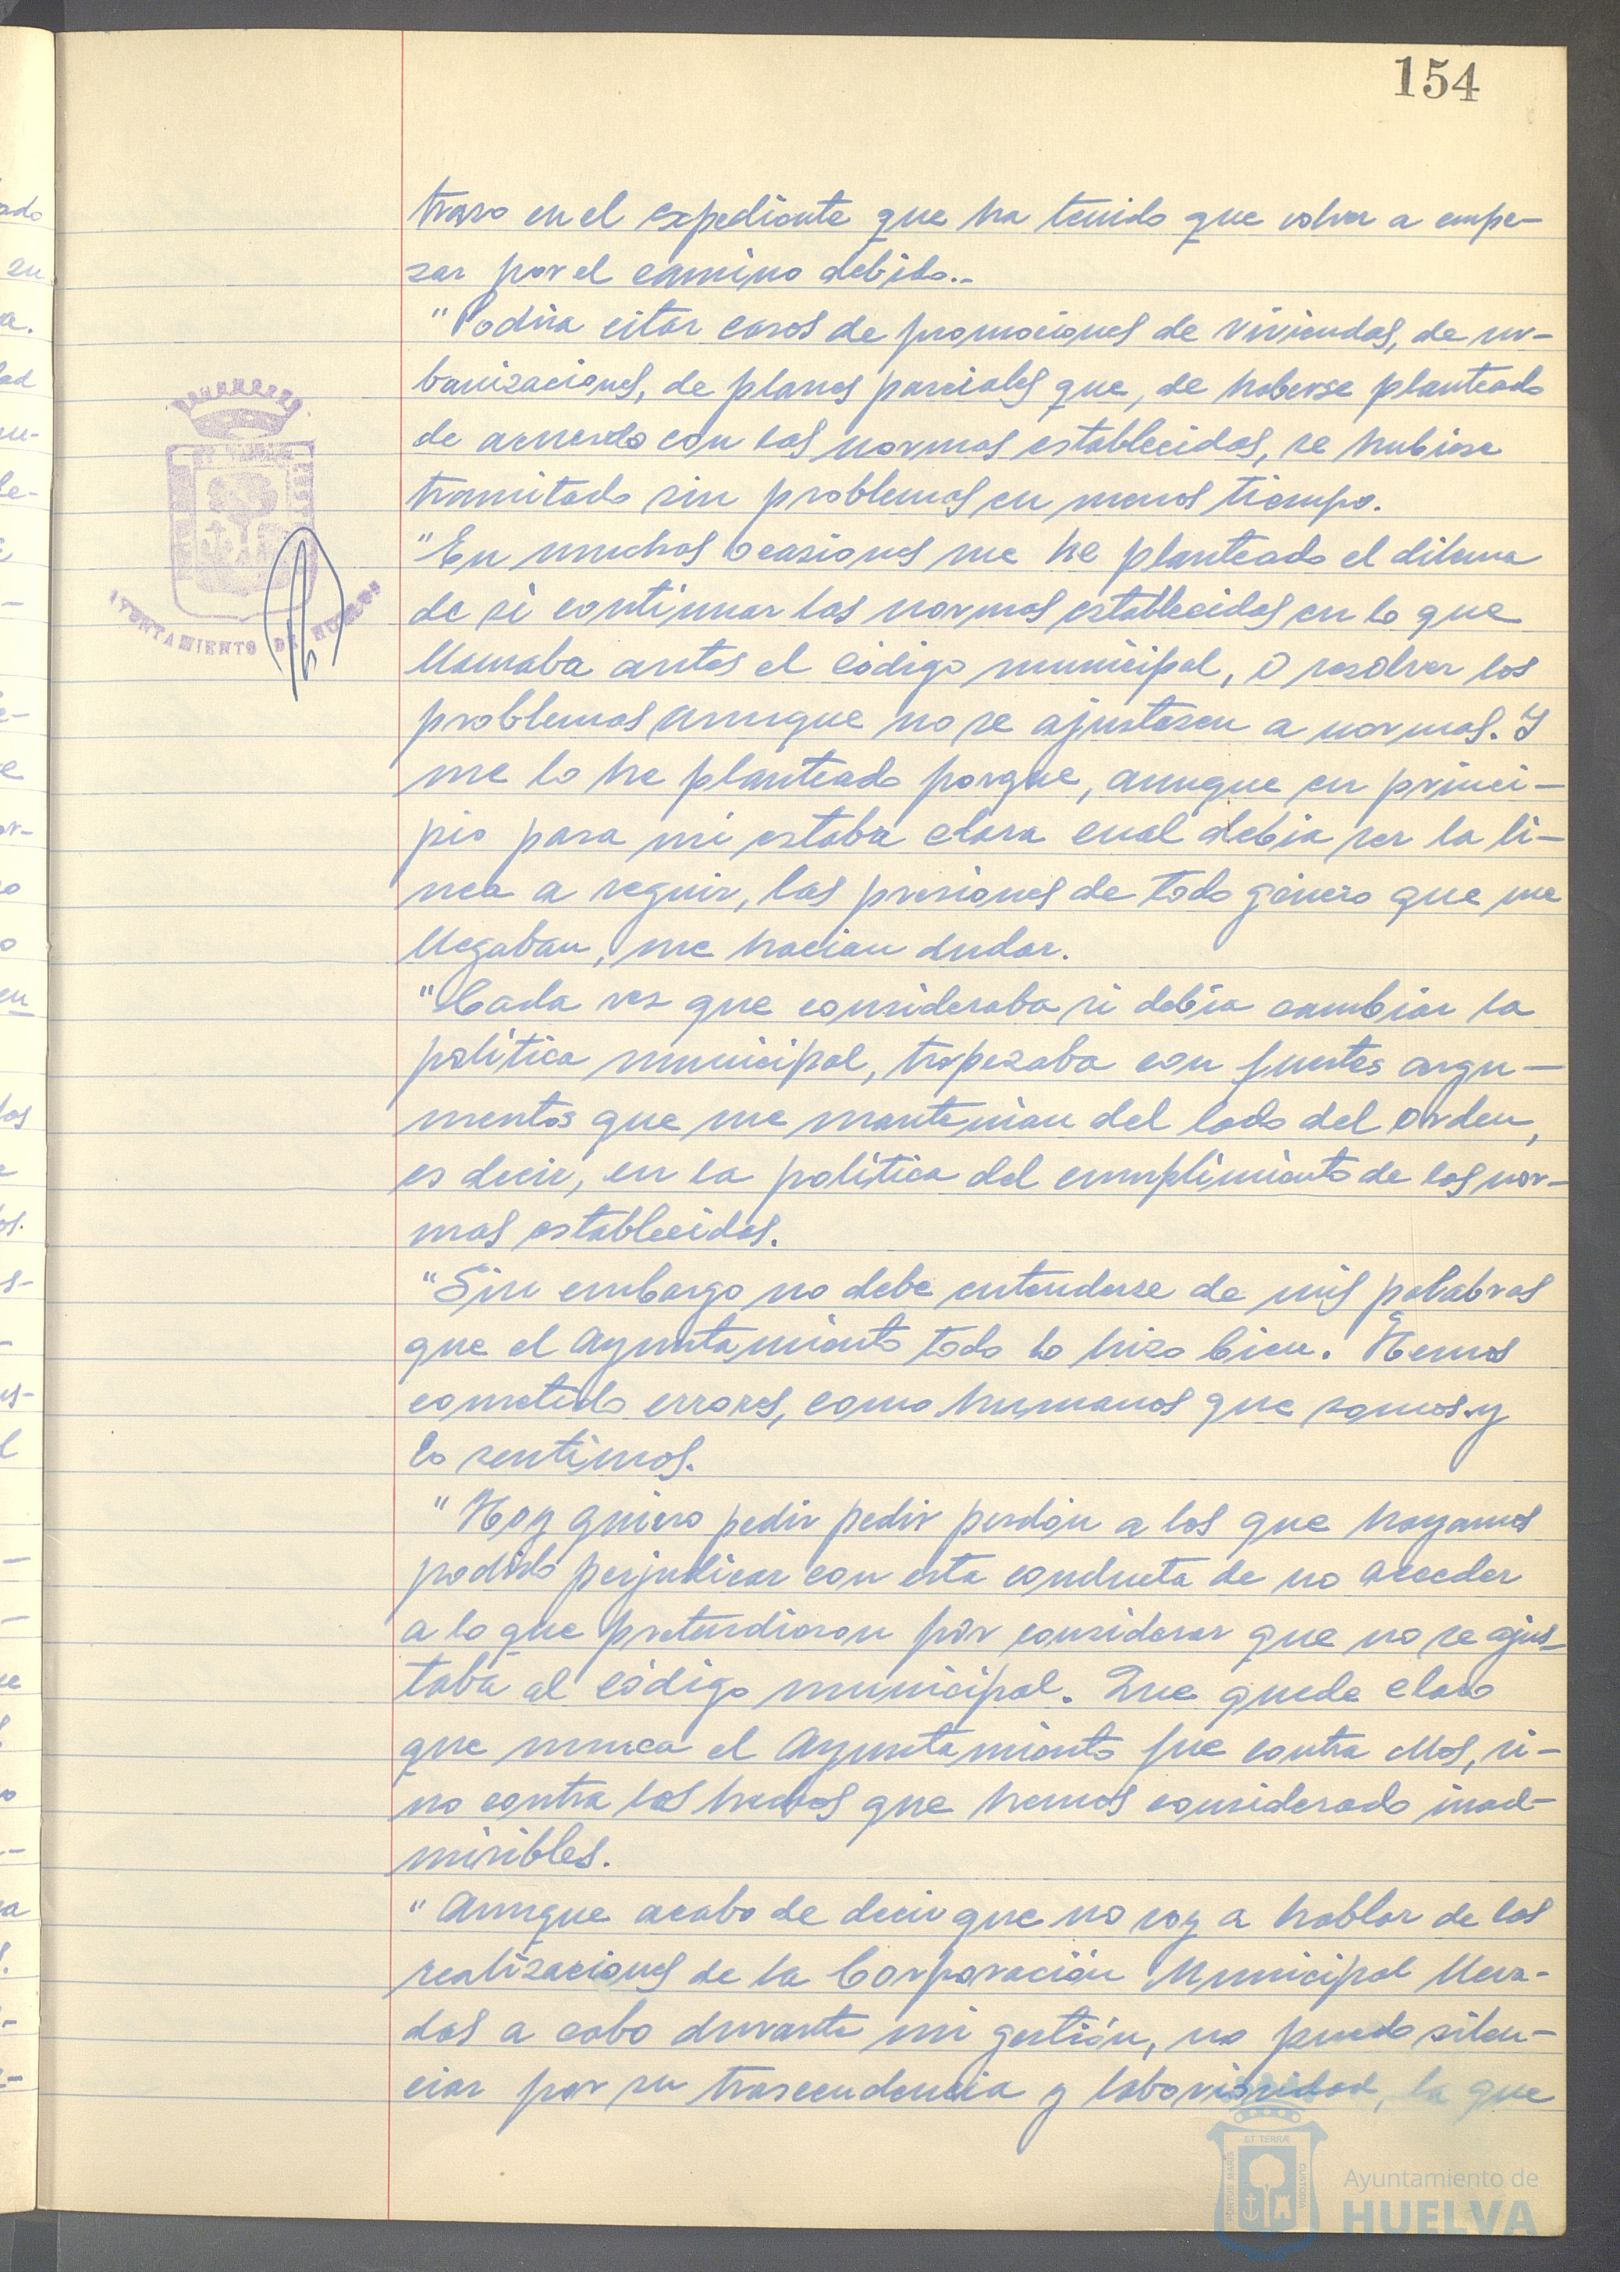 154
traso en el expediente que ha tenido que volver a empe-
zar por el camino debido..
"Podria citar casos de promociones de viviendas, de ur-
banizaciones, de planes parciales que, de haberse planteado
de acuerdo con las normas establecidas, se hubiese
tramitado sin problemas en menos tiempo.
"En muchas ocasiones me he planteado el dilema
de si continuar las normas establecidas en lo que
llamaba antes el código municipal, o resolver los
problemas aunque no se ajustasen a normas. Y
me lo he planteado porque, aunque en princi-
pio para mi estaba clara cual debia ser la li-
nea a seguir, las presiones de todo género que me
llegaban, me hacian dudar.
"Cada vez que consideraba si debia cambiar la
politica municipal, tropezaba con fuertes argu-
mentos que me mantenian del lado del orden,
es decir, en la politica del cumplimiento de las nor-
mas establecidas.
"Sin embargo no debe entenderse de mis palabras
que el Ayuntamiento todo lo hizo bien. Hemos
cometido errores, como humanos que somos y
lo sentimos.
"Hoy quiero pedir pedir perdón a los que hayamos
podido perjudicar con esta conducta de no acceder
a lo que pretendieron por considerar que no se ajus-
taba al código municipal. Que quede claro
que nunca el Ayuntamiento fue contra ellos, si-
no contra los hechos que hemos considerado inad-
misibles.
"Aunque acabo de decir que no voy a hablar de las
realizaciones de la Corporación Municipal lleva-
das a cabo durante mi gestión, no puedo silen-
ciar por su trascendencia y laboriosidad, la que
AYUNTAMIENTO DE HUELVA
PORTUS MARIS
ET TERRÆ
CUSTODIA
Ayuntamiento de
HUELVA